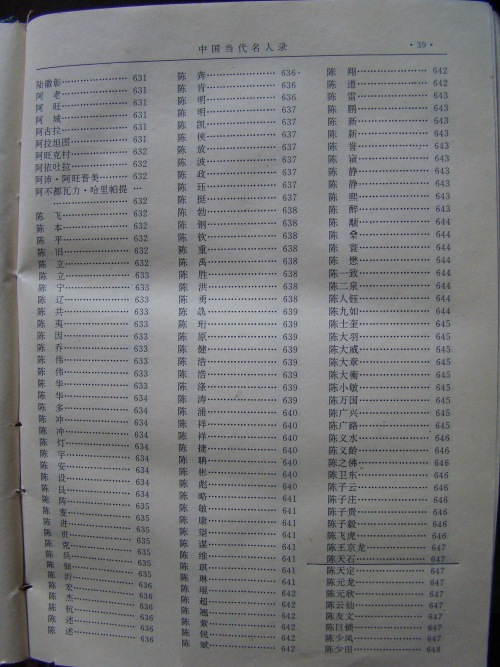 中国当代名人录
·39·
陆徽彰 631
阿老 631
阿旺 631
阿城 631
阿古拉 631
阿拉坦图 631
阿旺克村 632
阿依吐拉 632
阿沛·阿旺晋美 632
阿不都瓦力·哈里帕提
632
陈飞 632
陈本 632
陈平 632
陈旧 632
陈立 632
陈立 633
陈宁 633
陈辽 633
陈共 633
陈夷 633
陈因 633
陈乔 633
陈伟 633
陈伟 633
陈华 633
陈华 634
陈多 634
陈冲 634
陈冲 634
陈灯 634
陈宇 634
陈安 634
陈设 634
陈良 634
陈阵 635
陈麦 635
陈进 635
陈贡 635
陈克 635
陈兵 635
陈佃 635
陈沂 635
陈宏 636
陈杰 636
陈杭 636
陈述 636
陈述 636
陈奔 636
陈肯 636
陈明 636
陈明 637
陈凯 637
陈侠 637
陈放 637
陈波 637
陈政 637
陈珏 637
陈挺 637
陈勃 638
陈钢 638
陈钦 638
陈重 638
陈禹 638
陈胜 638
陈洪 638
陈勇 638
陈 638
陈珩 639
陈原 639
陈健 639
陈浩 639
陈浩 639
陈涤 639
陈涛 639
陈涌 640
陈祥 640
陈祥 640
陈捷 640
陈聃 640
陈彬 640
陈彪 640
陈略 641
陈敏 641
陈康 641
陈望 641
陈谋 641
陈维 641
陈琪 641
陈琳 641
陈琨 642
陈超 642
陈翘 642
陈紫 642
陈锐 642
陈斌 642
陈翔 642
陈道 642
陈雷 643
陈鹏 643
陈新 643
陈新 643
陈誉 643
陈 643
陈静 643
陈静 643
陈熙 643
陈醉 643
陈颙 644
陈 644
陈 644
陈懋 644
陈一致 644
陈二泉 644
陈人钰 644
陈九如 644
陈士奎 645
陈大羽 645
陈大威 645
陈大章 645
陈大衡 645
陈小敏 645
陈万国 645
陈广兴 645
陈广路 645
陈义水 646
陈义龄 646
陈之佛 646
陈卫东 646
陈子云 646
陈子庄 646
陈子贵 646
陈子毅 646
陈飞虎 646
陈王京龙 647
陈天石 647
陈天定 647
陈元龙 647
陈元欣 647
陈云仙 647
陈友文 647
陈巨锁 647
陈少风 647
陈少田 648